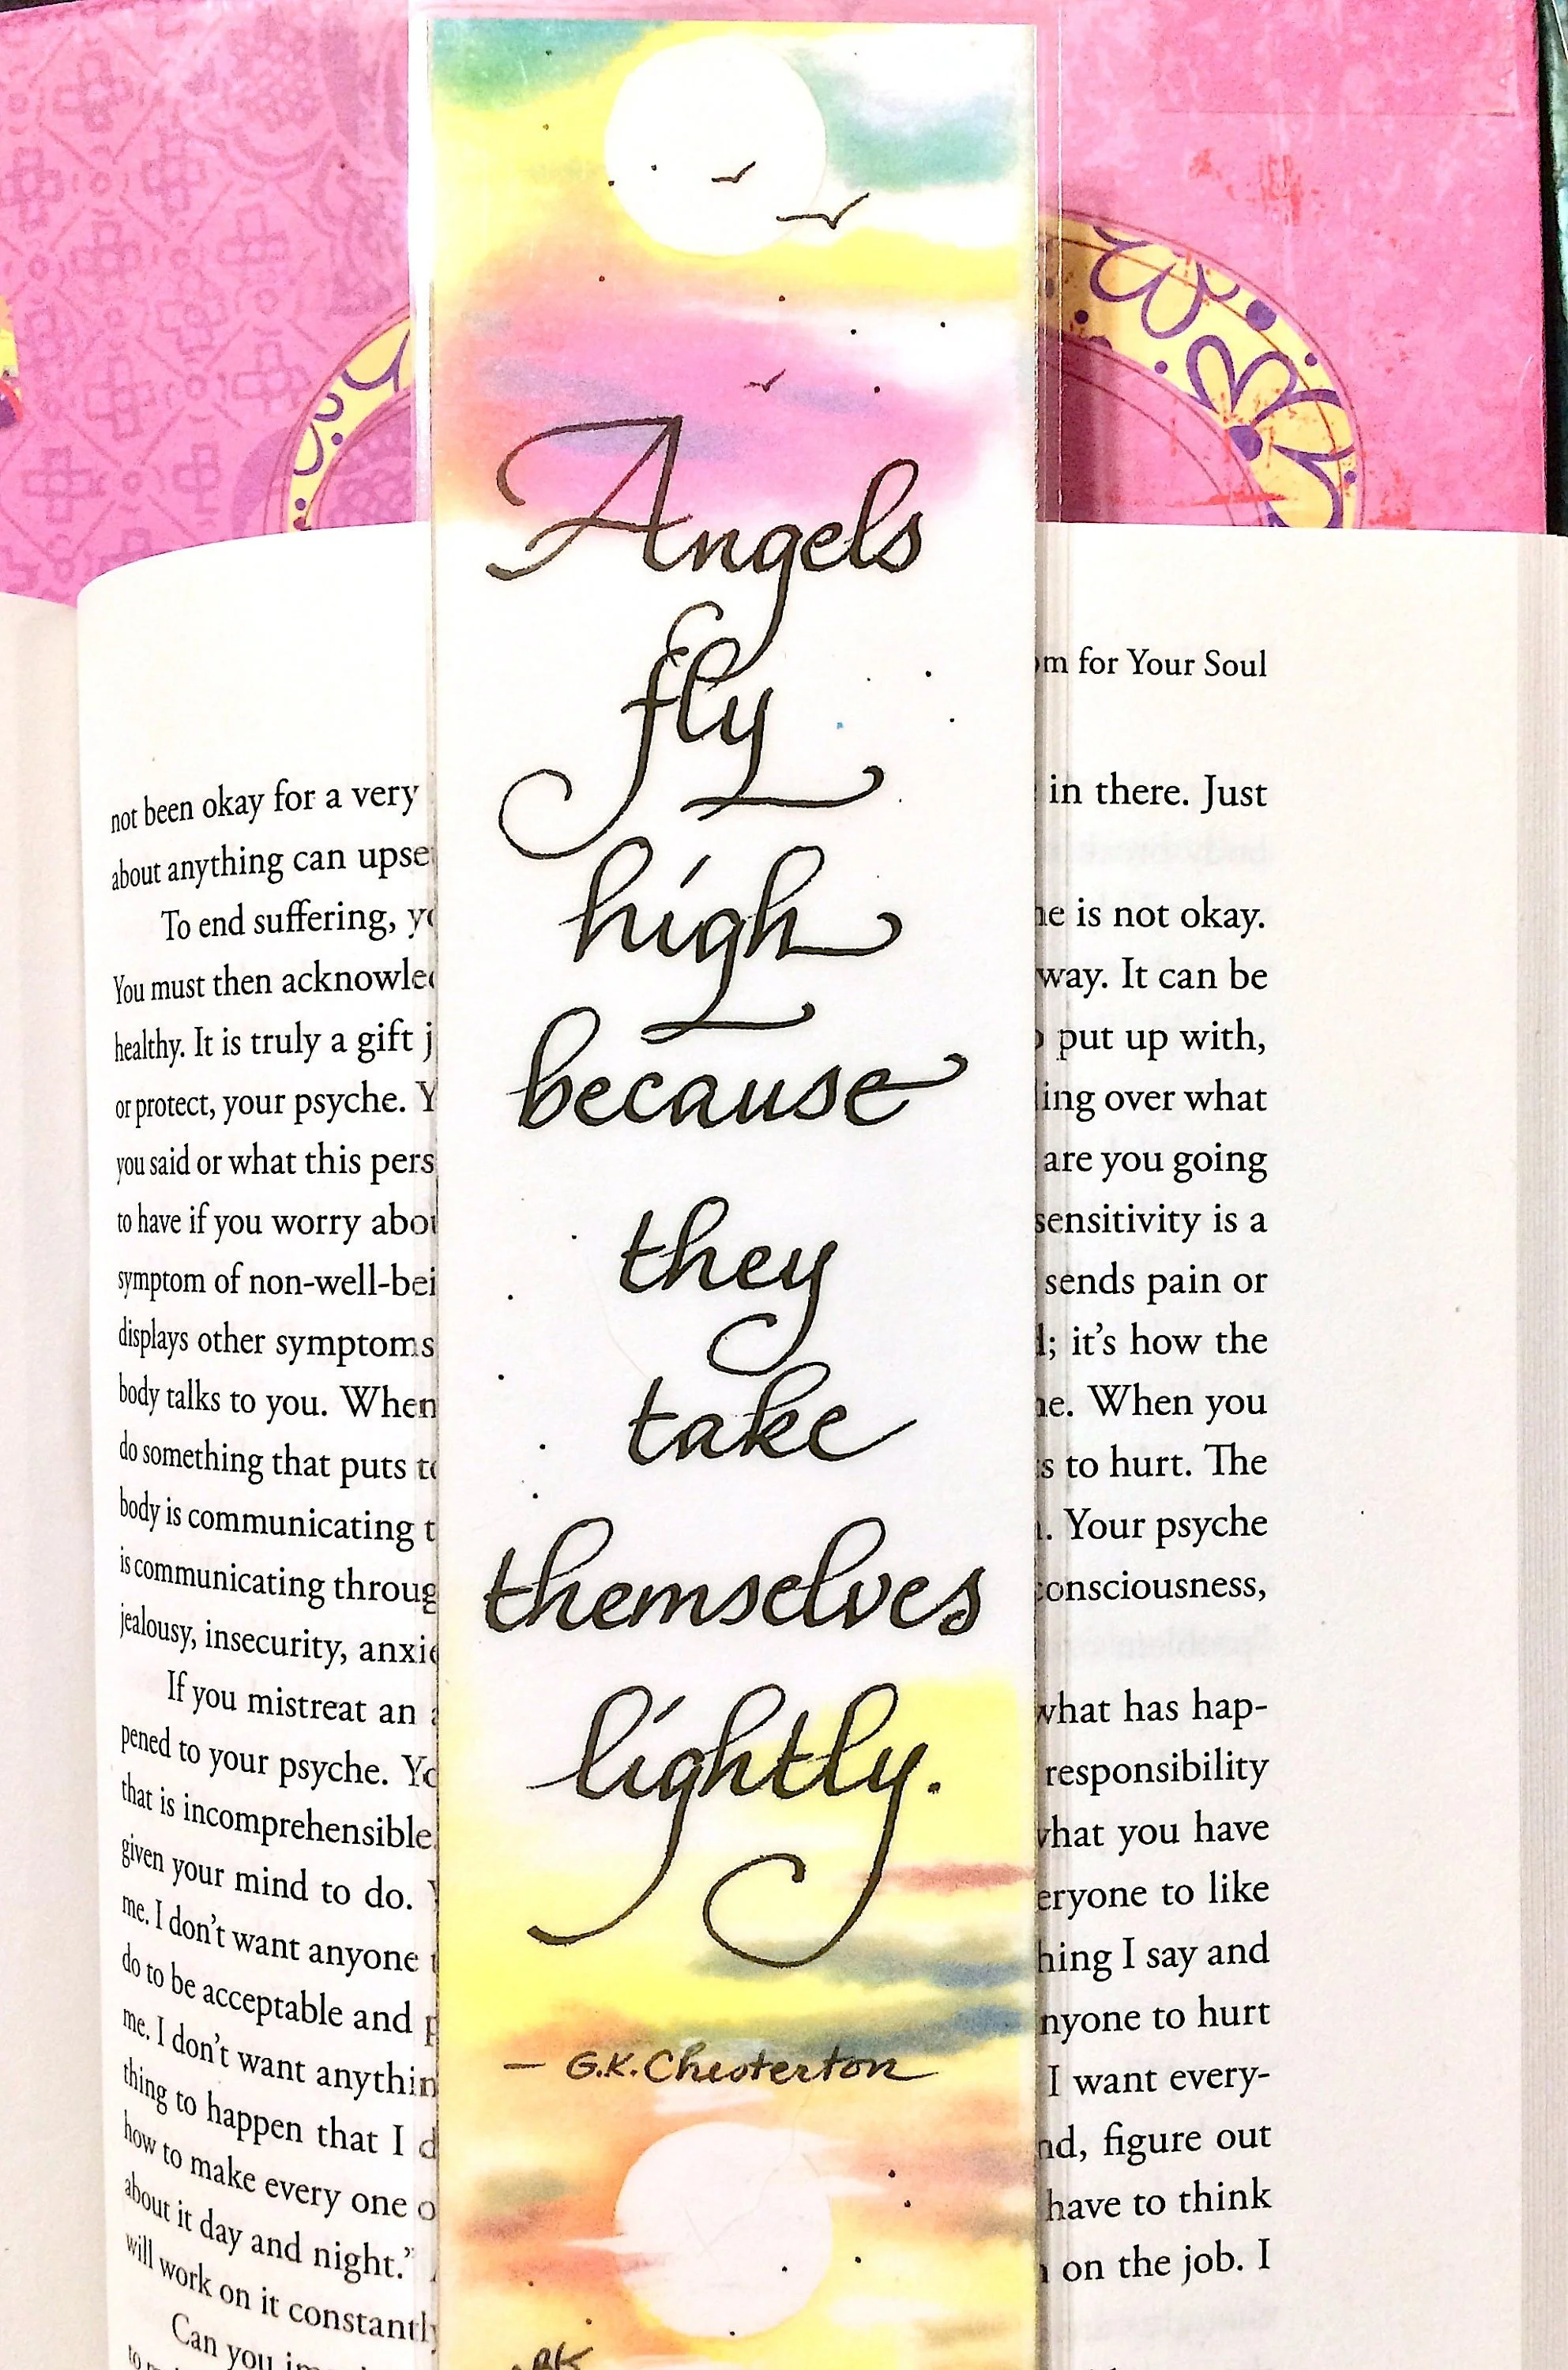 Angels
fly
high
because
they
take
themselves
lightly.
— G.K. Chesterton
BK
not been okay for a very
about anything can upse
To end suffering, yo
You must then acknowled
healthy. It is truly a gift j
or protect, your psyche. Y
you said or what this pers
to have if you worry abou
symptom of non-well-bei
displays other symptoms
body talks to you. When
do something that puts to
body is communicating t
is communicating throug
jealousy, insecurity, anxie
If you mistreat an a
pened to your psyche. Yo
that is incomprehensible.
given your mind to do. Y
me. I don't want anyone t
do to be acceptable and p
me. I don't want anythin
thing to happen that I d
how to make every one o
about it day and night."
will work on it constantly
Can you im
om for Your Soul
in there. Just
ne is not okay.
way. It can be
o put up with,
ling over what
are you going
sensitivity is a
sends pain or
l; it's how the
ne. When you
s to hurt. The
n. Your psyche
consciousness,
what has hap-
responsibility
what you have
eryone to like
hing I say and
nyone to hurt
I want every-
nd, figure out
have to think
n on the job. I